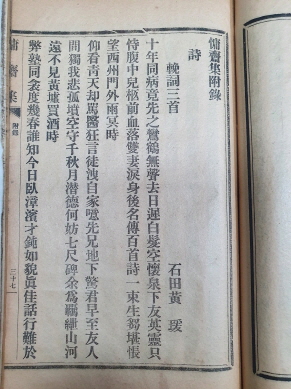 傭齋集附錄
詩
輓詞三首
石田黃瑗
十年同病竟先之鸞鶴無聲去日遲白髮空懷泉下友英靈只
侍腹中兒松前血落雙妻淚身後名傳百首詩一束生芻堪悵
望西州門外雨冥時
仰看靑天却罵醫狂言徒洩自家噫先兄地下驚君早至友人
間獨我悲孤墳空守千秋月潜德何妨七尺碑余爲羈紲山河
遠不見黃壚買酒時
弊塾同衾度幾春誰知今日臥漳濱才鈍如貌眞佳話行難於
傭齋集
附錄
三十七